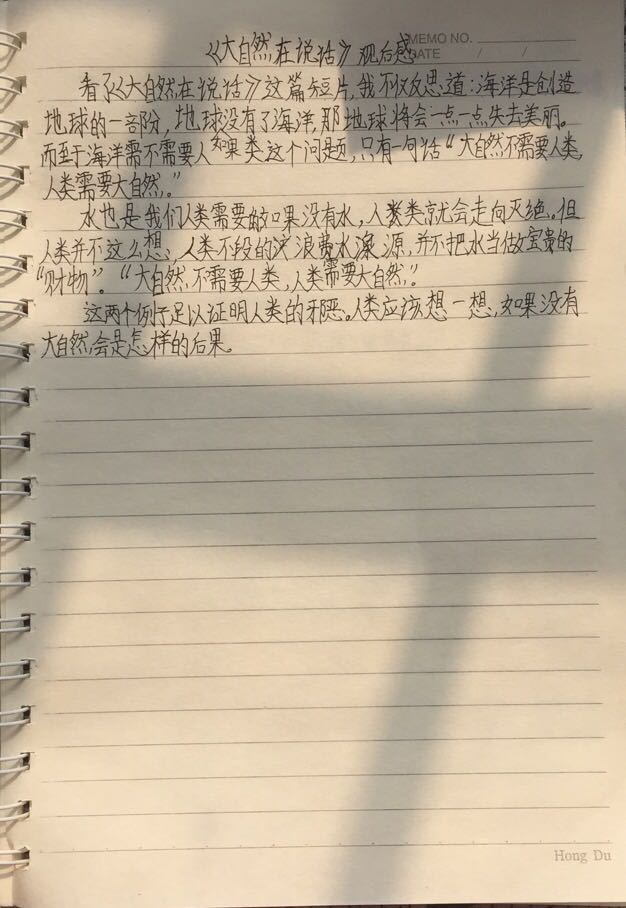 《大自然在说话》观后感
MEMO NO.
DATE / /
看了《大自然在说话》这篇短片,我不仅反思道:海洋是创造
地球的一部份,地球没有了海洋,那地球将会一点一点失去美丽。
而至于海洋需不需要人类这个问题,只有一句话“大自然不需要人类,
人类需要大自然。”
水也是我们人类需要的如果没有水,人类就会走向灭绝。但
人类并不这么想,人类不段的浪费水源,并不把水当做宝贵的
“财物”。“大自然不需要人类,人类需要大自然。”
这两个例子足以证明人类的邪恶。人类应该想一想,如果没有
大自然会是怎样的后果。
Hong Du